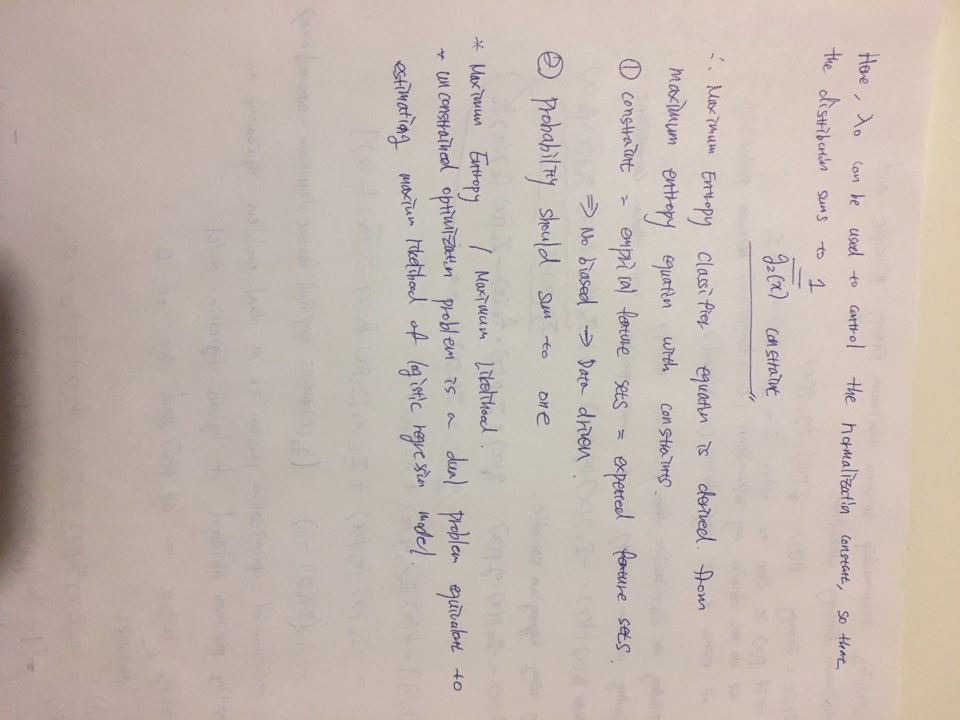 Here, λ0 can be used to control the normalization constant, so that,
the distribution sums to 1
g2(x) constraint
∴ Maximum Entropy classifier equation is derived from
maximum entropy equation with constraints.
① constraint = empirical feature sets = expected feature sets.
⇒ No biased → Data driven.
② probability should sum to one
* Maximum Entropy / Maximum likelihood.
* unconstrained optimization problem is a dual problem equivalent to
estimating maximum likelihood of logistic regression model.